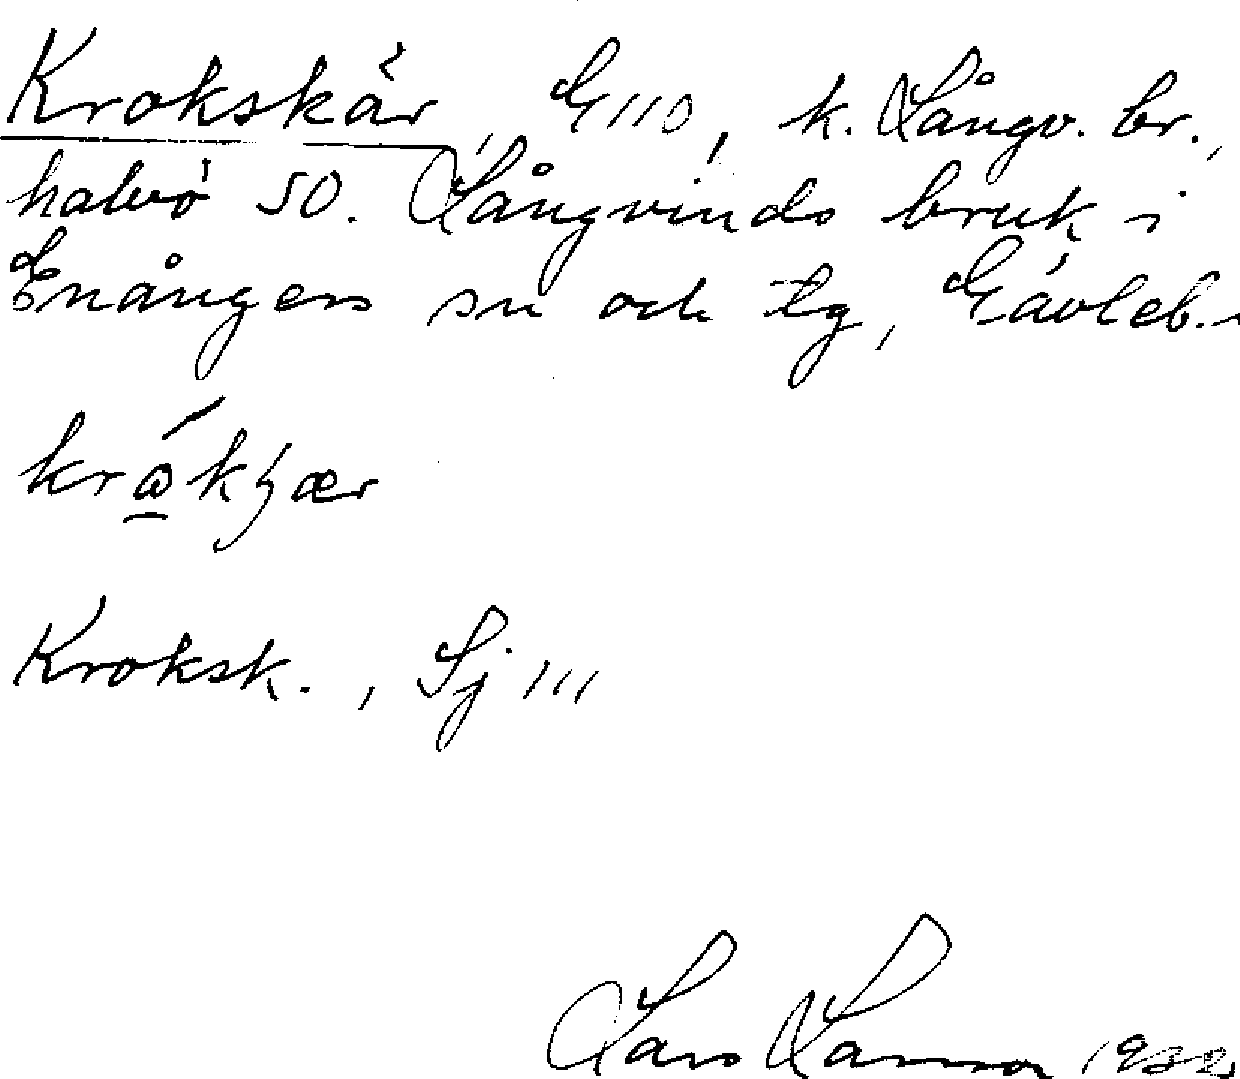 Krokskär, G 110, k. Långv. br.,
halvö SO. Långvinds bruk i
Enångers sn och tg, Gävleb.
kråkʂær
Kroksk., Sj 111
Lars